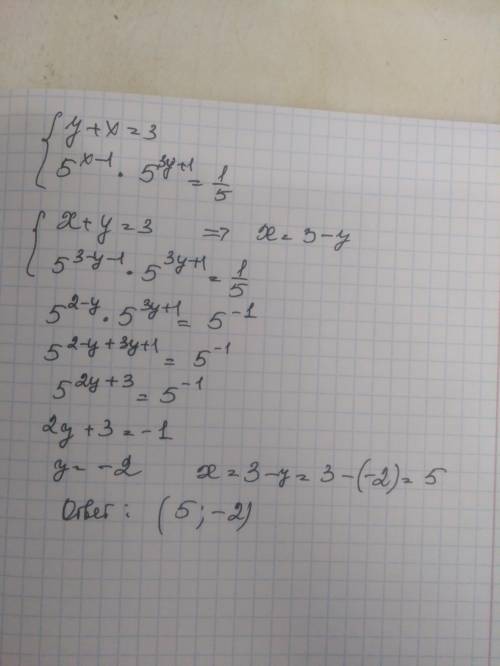 y + x = 3
5^{x-1} · 5^{3y+1} = 1/5
x + y = 3 ⇒ x = 3 - y
5^{3-y-1} · 5^{3y+1} = 1/5
5^{2-y} · 5^{3y+1} = 5^{-1}
5^{2-y+3y+1} = 5^{-1}
5^{2y+3} = 5^{-1}
2y + 3 = -1
y = -2 x = 3 - y = 3 - (-2) = 5
Ответ: (5; -2)